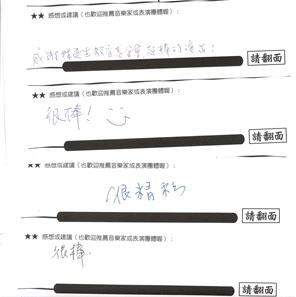 ★★ 感想或建議（也歡迎推薦音樂家或表演團體喔）：
請翻面
★★ 感想或建議（也歡迎推薦音樂家或表演團體喔）：
很棒！
請翻面
★★ 感想或建議（也歡迎推薦音樂家或表演團體喔）：
很精彩
請翻面
★★ 感想或建議（也歡迎推薦音樂家或表演團體喔）：
很棒.
請翻面